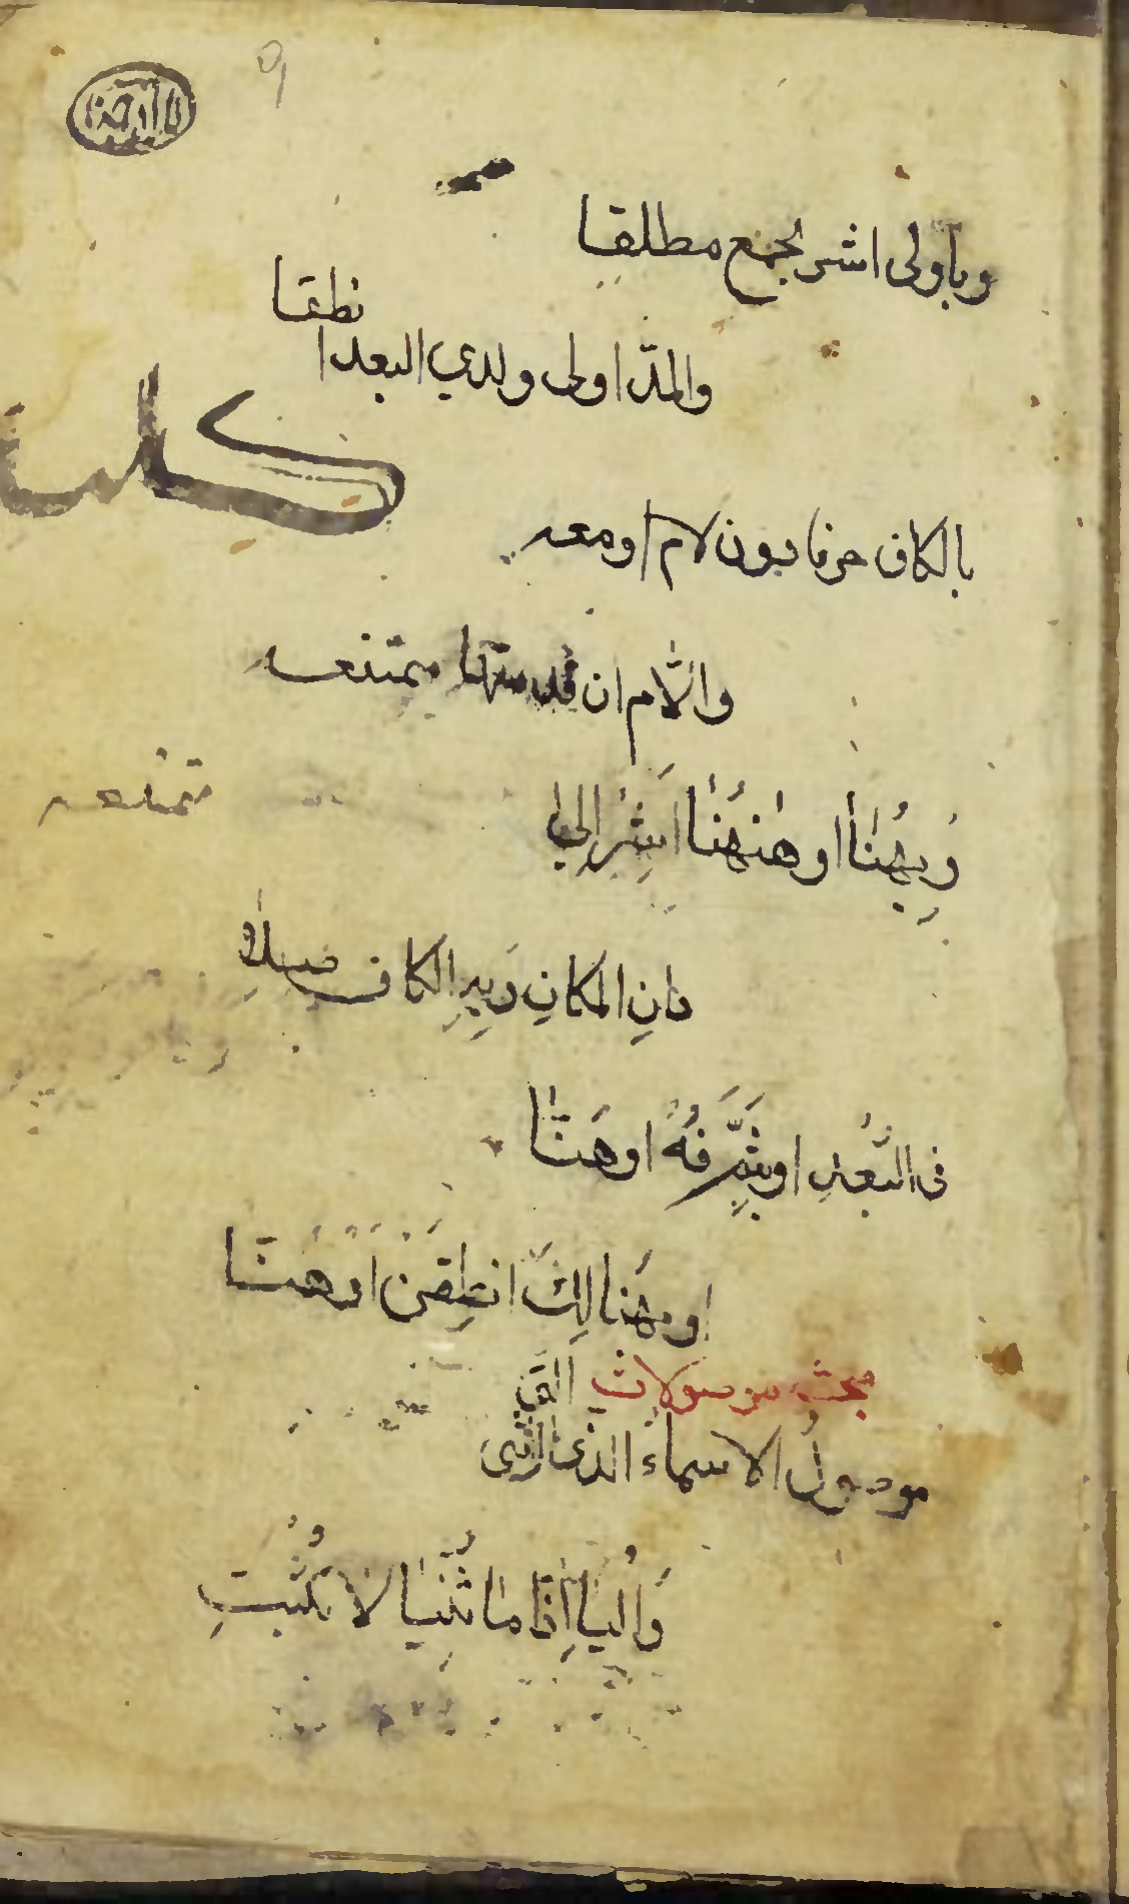 ٩
وبأولى اشر بجمع مطلقا
والمدّ اولى ولدي البعد انطقا
بالكاف حرفا دون لام او معه
واللّام ان قدمتها ممتنعه
ممتنعه
وَبِهُنٰا اوهٰنهُنٰا اَشِرْ الىٰ
دانِ المكانِ وَبِهِ الكاف صِلاٰ
فى البُعدِ اوبثَمَّ فُهْ اوهَنّٰا
او بهُنالِكَ انطِقَنْ اَوْهِنّا
مبحث موصولات
موصولُ الاسماء الذى انثى التى
وَالْيٰا اِذٰا مٰا ثُنِّيٰا لاٰ تُثْبِتِ